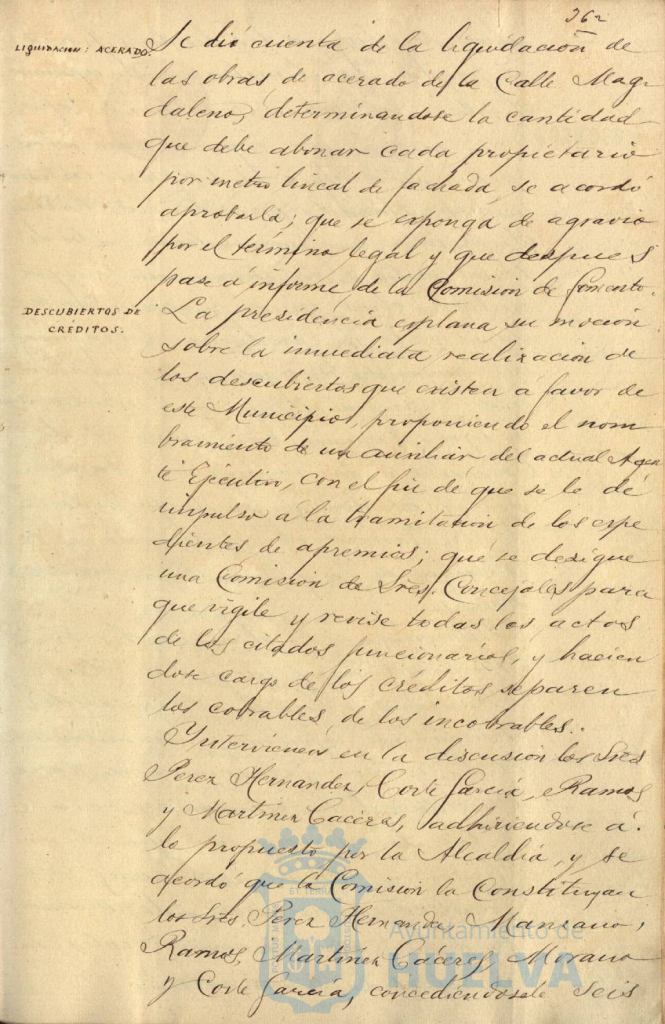 362
LIQUIDACION: ACERADO.
Se dió cuenta de la liquidación de
las obras de acerado de la Calle Mag-
dalena, determinandose la cantidad
que debe abonar cada propietario
por metro lineal de fachada, se acordó
aprobarla; que se exponga de agravio
por el término legal y que despues
pase á informe de la Comision de fomento.
DESCUBIERTOS DE
CRÉDITOS.
La presidencia explana su moción
sobre la inmediata realizacion de
los descubiertos que existen á favor de
este Municipio, proponiendo el nom
bramiento de un auxiliar del actual Agen
te Ejecutivo, con el fin de que se le dé
impulso á la tramitacion de los expe
dientes de apremios; que se designe
una Comision de Sres. Concejales para
que vigile y revise todos los actos
de los citados funcionarios, y hacien
dose cargo de los créditos separen
los cobrables, de los incobrables.
Intervienen en la discusion los Sres
Perez Hernandez, Corte García, Ramos
y Martinez Caceres, adhiriendose á
lo propuesto por la Alcaldia, y se
acordó que la Comision la Constituyan
los Sres. Perez Hernandez, Manzano,
Ramos, Martinez Cáceres, Morano
y Corte García, concediendosele seis
Ayuntamiento de
HUELVA